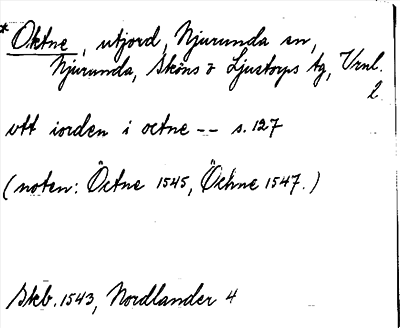 *Oktne, utjord, Njurunda sn,
Njurunda, Sköns o Ljustorps tg, Vrnl.
2
vtt iorden i octne -- s. 127
(noten: Öctne 1545, Öchne 1547.)
Skb. 1543, Nordlander 4